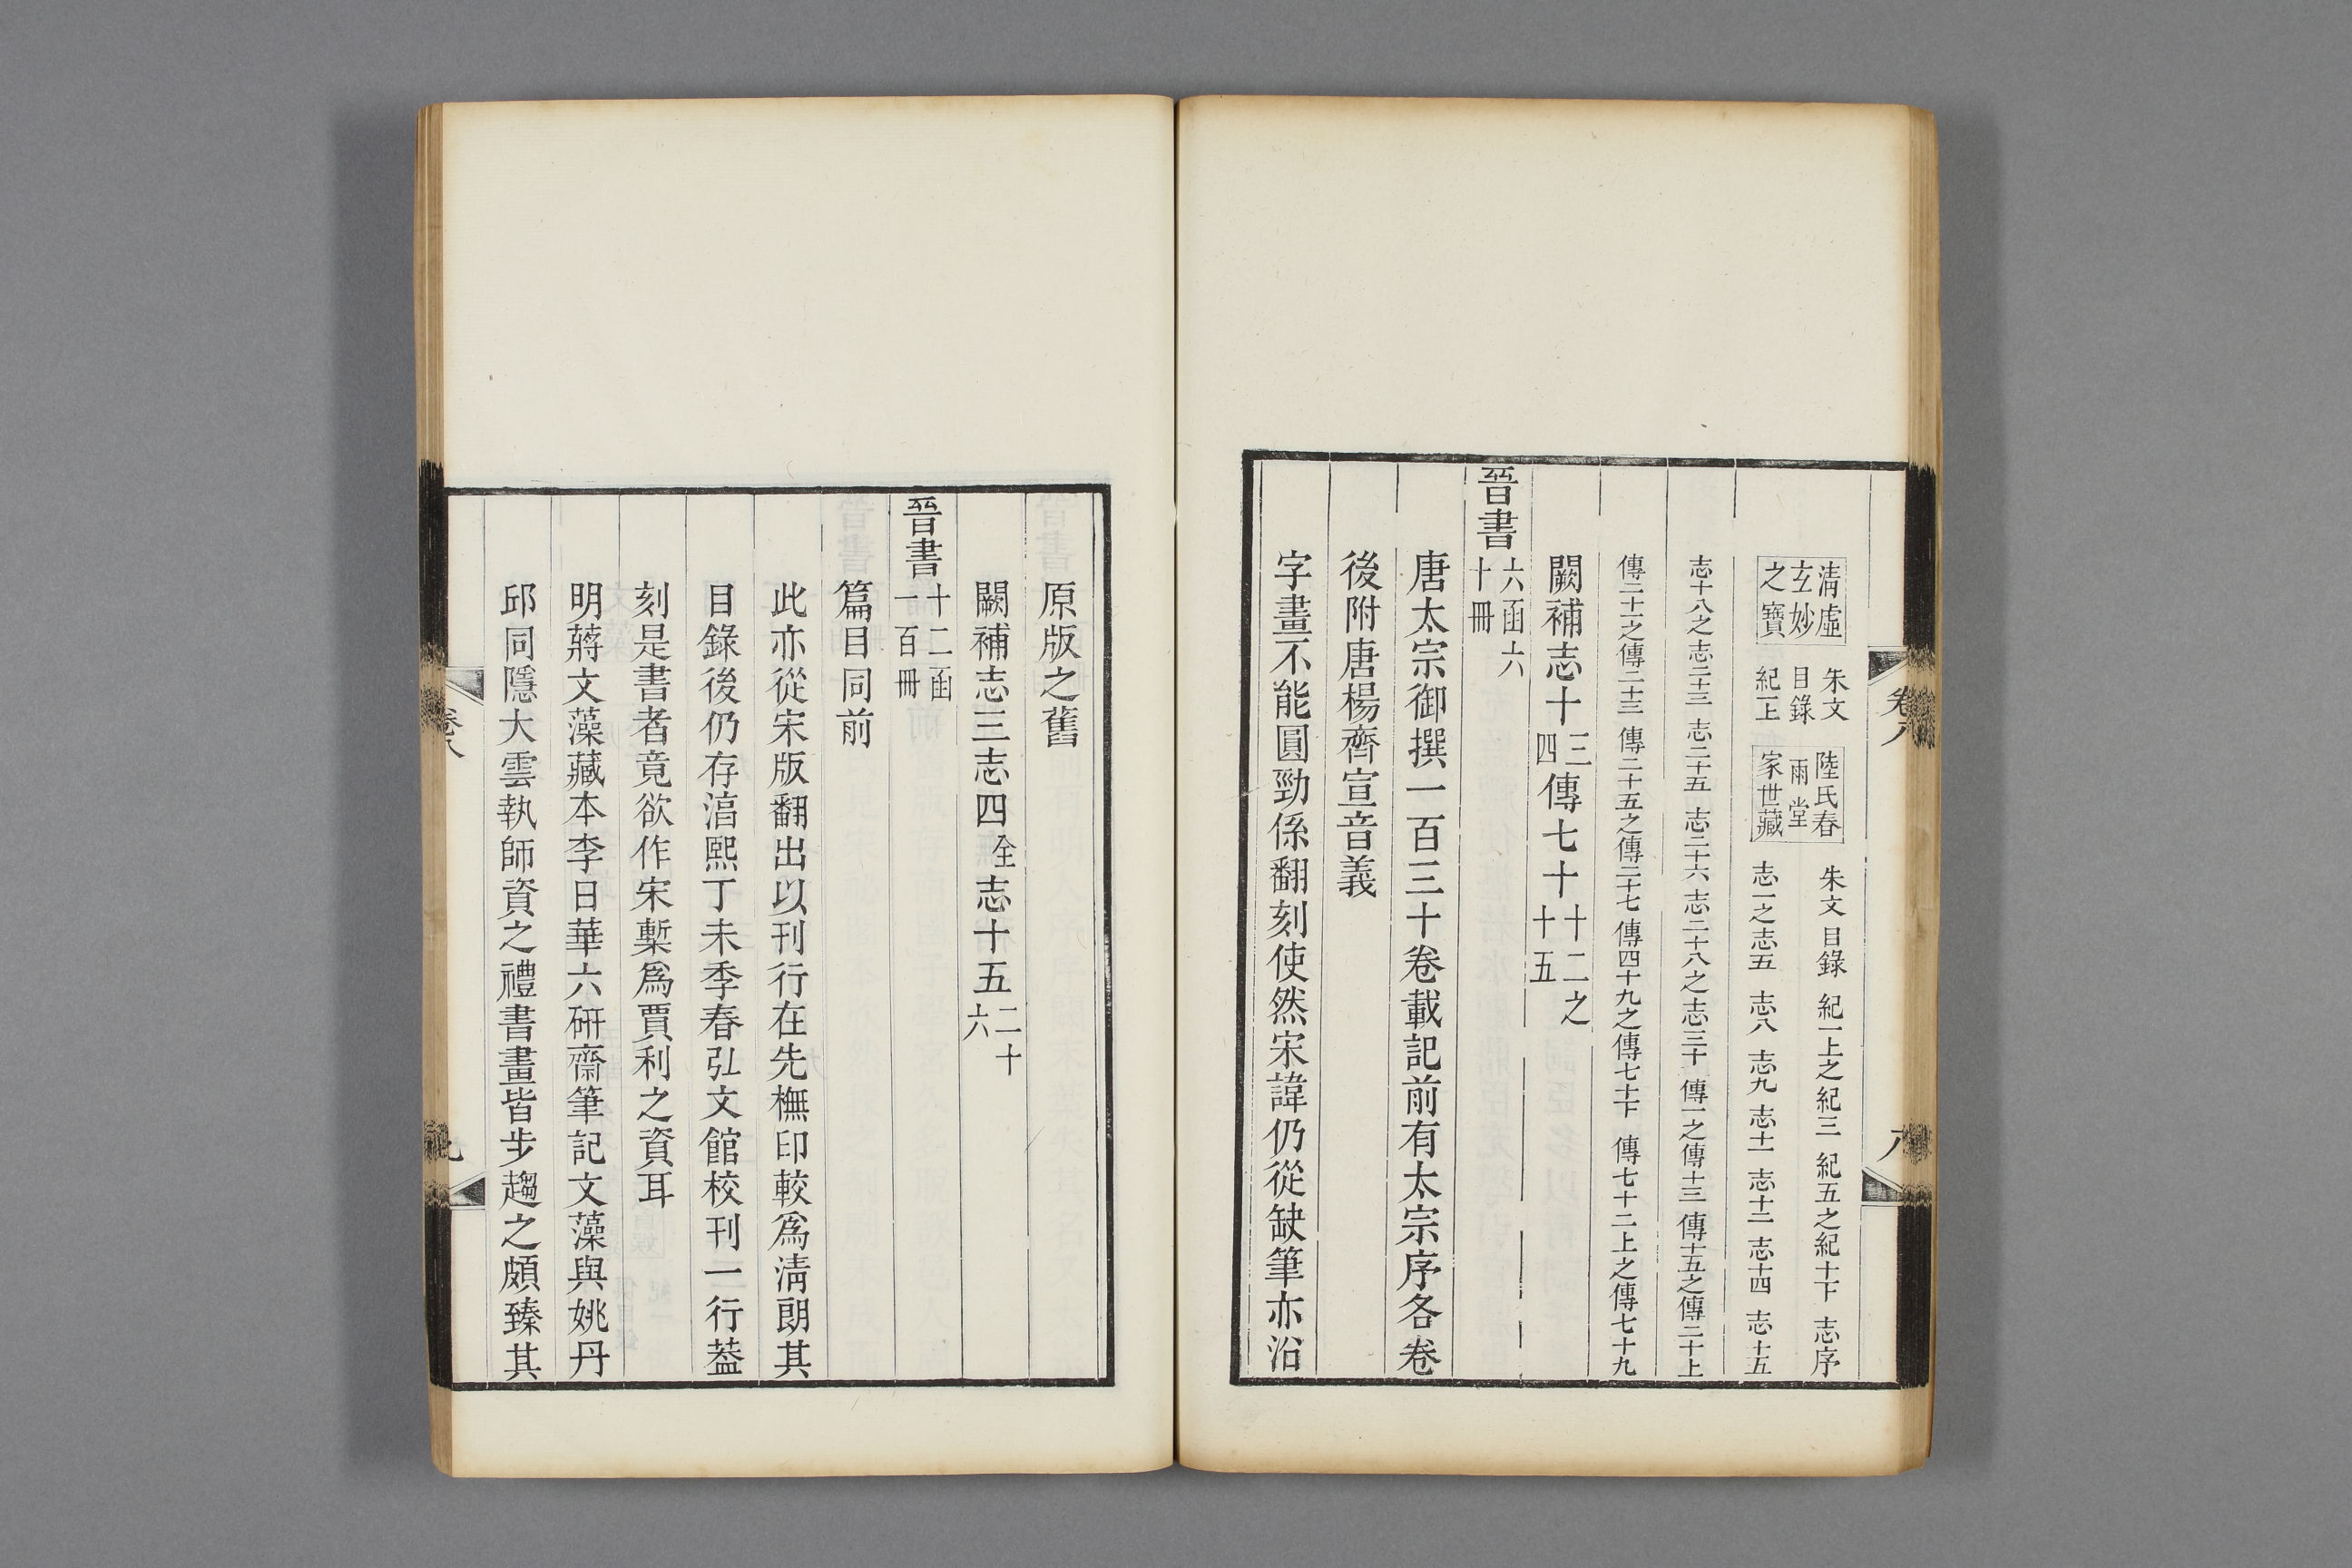 清虛玄妙之寶 朱文 目錄 紀上 陸氏春雨堂家世藏 朱文 目錄 紀一上之紀三 紀五之紀十下 志序 志一之志五 志八 志九 志十一 志十二 志十四 志十五
志十八之志二十三 志二十五 志二十六 志二十八之志三十 傳一之傳十三 傳十五之傳二十上
傳二十之傳二十三 傳二十五之傳二十七 傳四十九之傳七十下 傳七十二上之傳七十九
闕補志十三四傳七十十二之十五
晉書六函六十冊
唐太宗御撰一百三十卷載記前有太宗序各卷
後附唐楊齊宣音義
字畫不能圓勁係翻刻使然宋諱仍從缺筆亦沿
卷八
八
原版之舊
闕補志三志四全志十五二十六
晉書十二函一百冊
篇目同前
此亦從宋版翻出以刊行在先橅印較爲淸朗其
目錄後仍存湻熙丁未季春弘文館校刊一行葢
刻是書者竟欲作宋槧爲賈利之資耳
明蔣文藻藏本李日華六硏齋筆記文藻與姚丹
邱同隱大雲執師資之禮書畫皆步趨之頗臻其
卷八
九